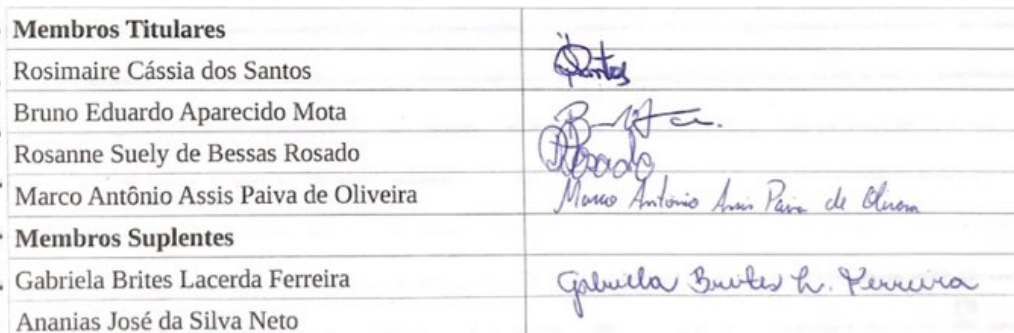 Membros Titulares
Rosimaire Cássia dos Santos
Bruno Eduardo Aparecido Mota
Rosanne Suely de Bessas Rosado Rosado
Marco Antônio Assis Paiva de Oliveira Marco Antônio Assis Paiva de Oliveira
Membros Suplentes
Gabriela Brites Lacerda Ferreira Gabriella Brites L. Ferreira
Ananias José da Silva Neto